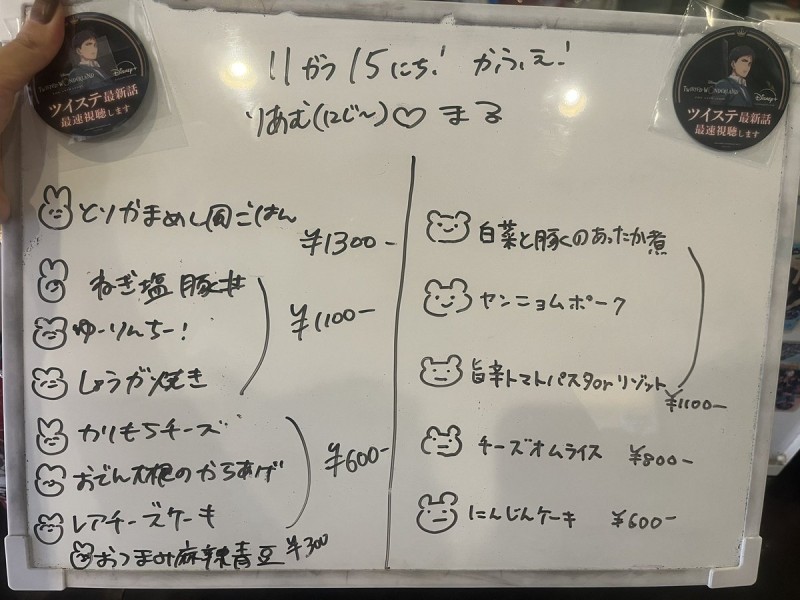 11がつ15にち! かふぇ!
りあむ(12じ〜)♡まる
TWISTED WONDERLAND
Disney+
ツイステ最新話
最速視聴します
Disney+
ツイステ最新話
最速視聴します
とりかまめし風ごはん
¥1300-
ねぎ塩豚丼
ゆーりんちー!
しょうが焼き
¥1100-
かりもちチーズ
おでん大根のからあげ
レアチーズケーキ
¥600-
おつまみ麻辣青豆 ¥300
白菜と豚くのあったか煮
ヤンニョムポーク
旨辛トマトパスタorリゾット
¥1100-
チーズオムライス ¥800-
にんじんケーキ ¥600-